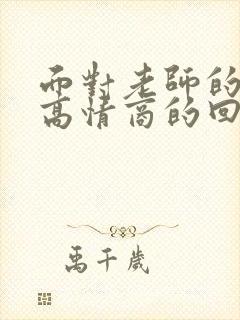 而對老師的
高情商的回
禹千歲